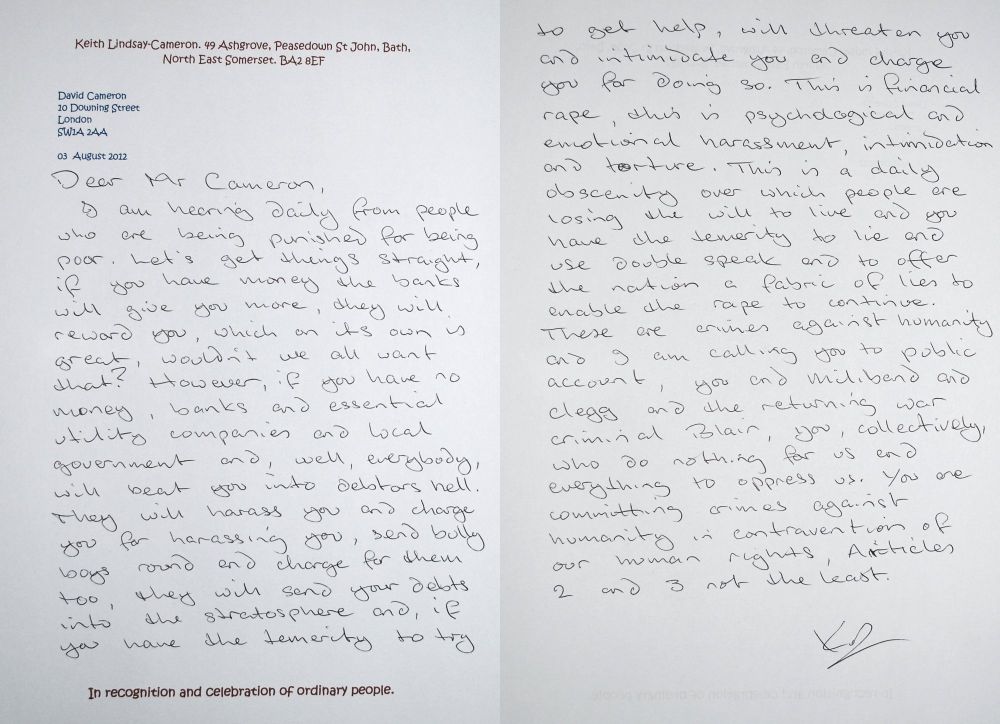 Keith Lindsay-Cameron. 49 Ashgrove, Peasedown St John, Bath,
North East Somerset. BA2 8EF
David Cameron
10 Downing Street
London
SW1A 2AA
03 August 2012
Dear Mr Cameron,
I am hearing daily from people
who are being punished for being
poor. Let's get things straight,
if you have money the banks
will give you more, they will
reward you, which on its own is
great, wouldn't we all want
that? However, if you have no
money, banks and essential
utility companies and local
government and, well, everybody,
will beat you into debtors hell.
They will harass you and charge
you for harassing you, send bully
boys round and charge for them
too, they will send your debts
into the stratosphere and, if
you have the temerity to try
In recognition and celebration of ordinary people.
to get help, will threaten you
and intimidate you and charge
you for doing so. This is financial
rape, this is psychological and
emotional harassment, intimidation
and torture. This is a daily
obscenity over which people are
losing the will to live and you
have the temerity to lie and
use double speak and to offer
the nation a fabric of lies to
enable the rape to continue.
These are crimes against humanity
and I am calling you to public
account, you and Miliband and
Clegg and the returning war
criminal Blair, you, collectively,
who do nothing for us and
everything to oppress us. You are
committing crimes against
humanity in contravention of
our human rights, Articles
2 and 3 not the least.